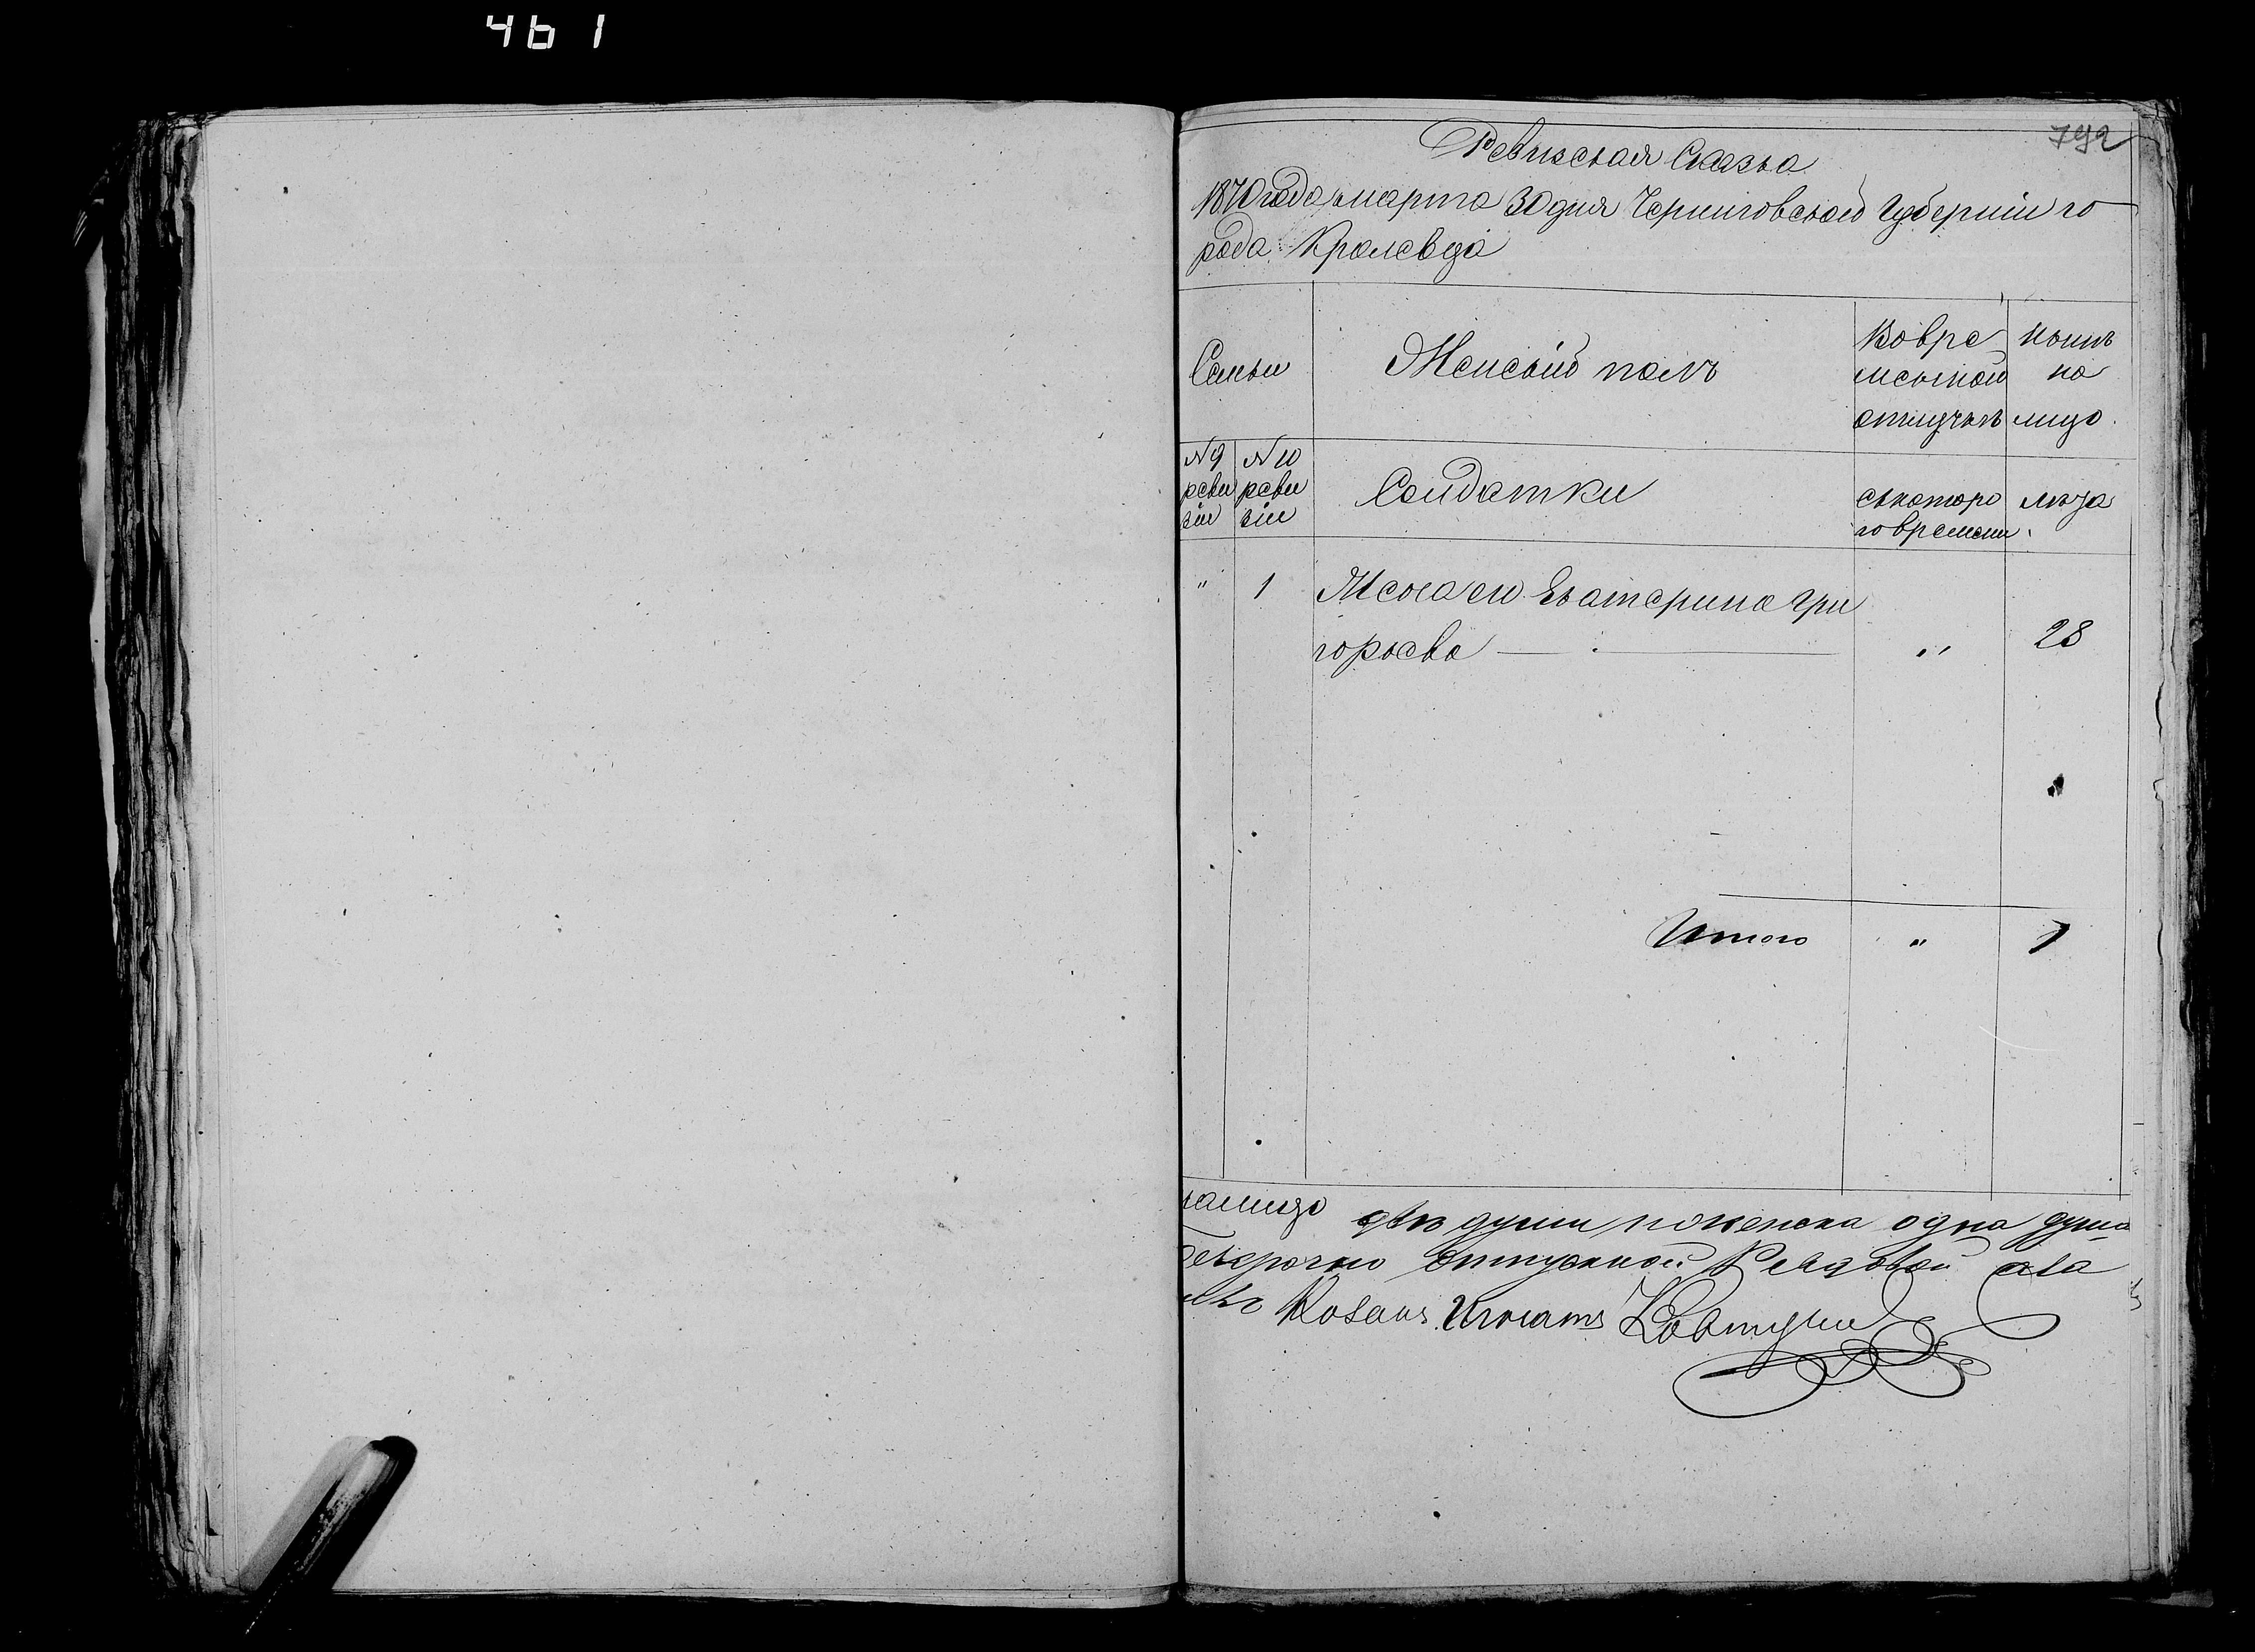 461
792
Ревизская Сказка
1870 года марта 30 дня Черниговской Губернiи го
рода Кролевца
Семьи
Женскiй полъ
Вовре
менной
отлучкѣ
Нынѣ
на
лицо
№ 9
реви
зiи
№ 10
реви
зiи
Солдатки
съкоторо
го времени
лѣта
" 1 Жена его Екатерина Гри
горьева " 28
Итого " 1
налицо двѣ души поженска одна душа
отпускной Рядовой
Козакъ Игнатъ Ковтунъ